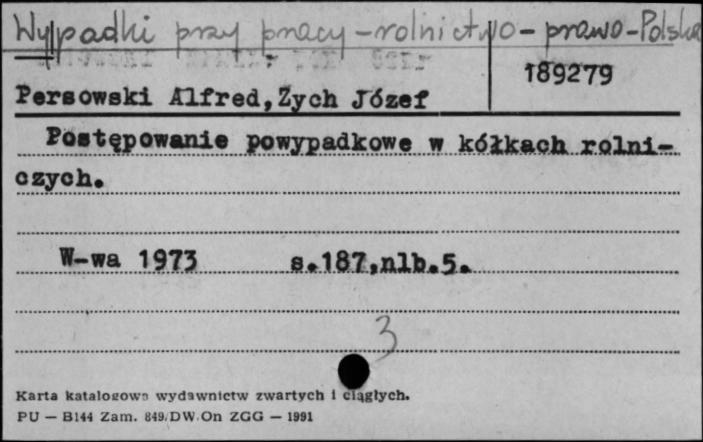 Wypadki przy pracy - rolnictwo - prawo - Polska
189279
Persowski Alfred, Zych Józef
Postępowanie powypadkowe w kółkach rolni-
czych.
W-wa 1973 s.187,nlb.5.
3
Karta katalogowa wydawnictw zwartych i ciągłych.
PU — B144 Zam. 849/DW.On ZGG — 1991